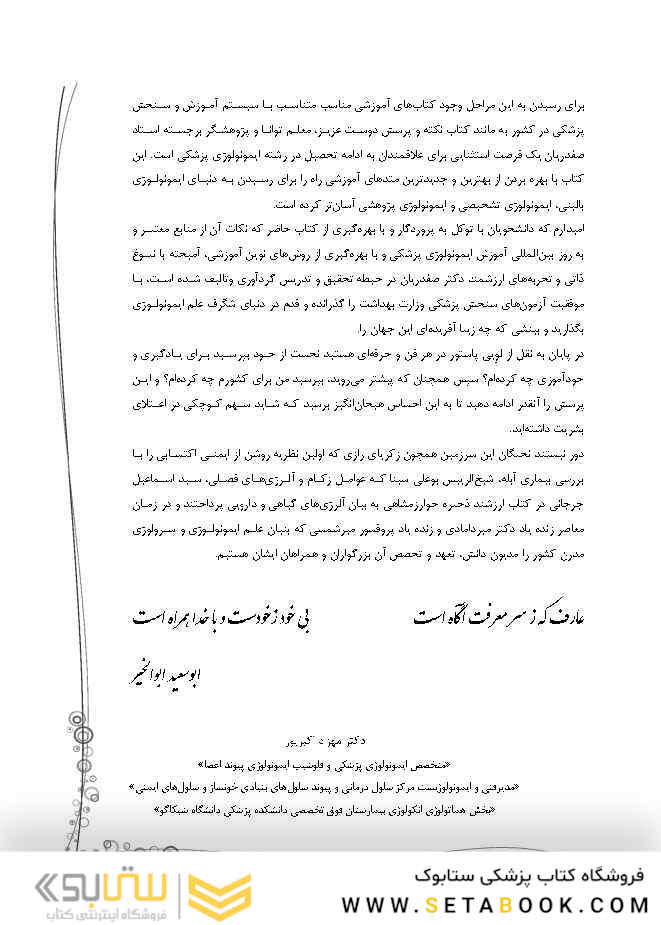 برای رسیدن به این مراحل وجود کتاب‌های آموزشی مناسب متناسب با سیستم آموزش و سنجش
پزشکی در کشور به مانند کتاب نکته و پرسش دوست عزیز، معلم توانا و پژوهشگر برجسته استاد
صفدریان یک فرصت استثنایی برای علاقمندان به ادامه تحصیل در رشته ایمونولوژی پزشکی است. این
کتاب با بهره بردن از بهترین و جدیدترین متدهای آموزشی راه را برای رسیدن به دنیای ایمونولوژی
بالینی، ایمونولوژی تشخیصی و ایمونولوژی پژوهشی آسان‌تر کرده است.
امیدارم که دانشجویان با توکل به پروردگار و با بهره‌گیری از کتاب حاضر که نکات آن از منابع معتبر و
به روز بین‌المللی آموزش ایمونولوژی پزشکی و با بهره‌گیری از روش‌های نوین آموزشی، آمیخته با نبوغ
ذاتی و تجربه‌های ارزشمند دکتر صفدریان در حیطه تحقیق و تدریس گردآوری وتالیف شده است، با
موفقیت آزمون‌های سنجش پزشکی وزارت بهداشت را گذرانده و قدم در دنیای شگرف علم ایمونولوژی
بگذارید و ببینی که چه زیبا آفریده‌ای این جهان را.
در پایان به نقل از لویی پاستور در هر فن و حرفه‌ای هستید نخست از خود بپرسید برای یادگیری و
خودآموزی چه کرده‌ام؟ سپس همچنان که پیشتر می‌روید، بپرسید من برای کشورم چه کرده‌ام؟ و این
پرسش را آنقدر ادامه دهید تا به این احساس هیجان‌انگیز برسید که شاید سهم کوچکی در اعتلای
بشریت داشته‌اید.
دور نیستند نخبگان این سرزمین همچون زکریای رازی که اولین نظریه روشن از ایمنی اکتسابی را با
بررسی بیماری آبله، شیخ‌الرییس بوعلی سینا که عوامل زکام و آلرژی‌های فصلی، سید اسماعیل
جرجانی در کتاب ارزشند ذخیره خوارزمشاهی به بیان آلرژی‌های گیاهی و دارویی پرداختند و در زمان
معاصر زنده یاد دکتر میردامادی و زنده یاد پروفسور میرشمسی که بنیان علم ایمونولوژی و سرولوژی
مدرن کشور را مدیون دانش، تعهد و تخصص آن بزرگواران و همراهان ایشان هستیم.
عارف که ز سر معرفت آگاه است بی خود ز خودست و با خدا همراه است
ابوسعید ابوالخیر
دکتر مهرداد اکبرپور
«متخصص ایمونولوژی پزشکی و فلوشیپ ایمونولوژی پیوند اعضا»
«مدیرفنی و ایمونولوژیست مرکز سلول درمانی و پیوند سلول‌های بنیادی خونساز و سلول‌های ایمنی»
«بخش هماتولوژی انکولوژی بیمارستان فوق تخصصی دانشکده پزشکی دانشگاه شیکاگو»
فروشگاه کتاب پزشکی ستابوک
WWW.SETABOOK.COM
ستابوک
فروشگاه اینترنتی کتاب